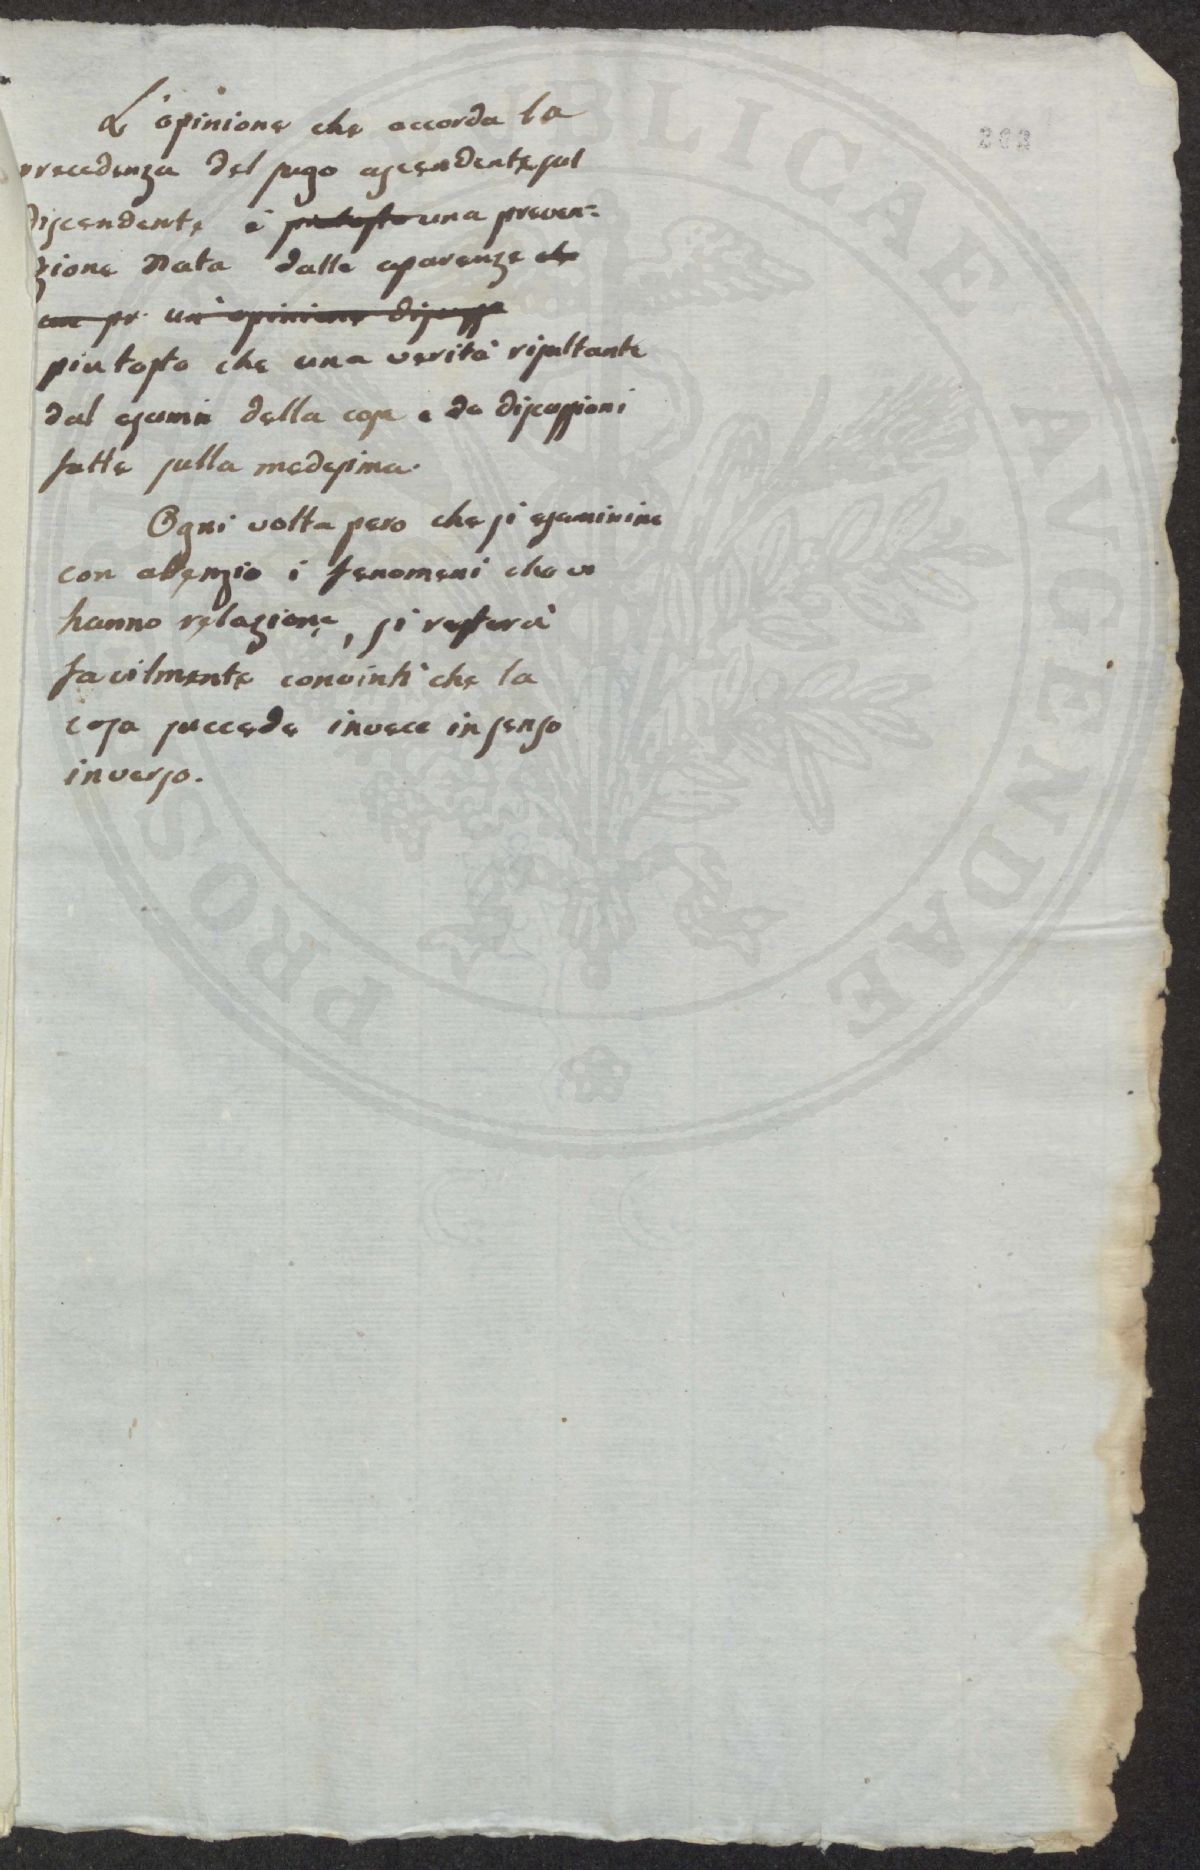 L'opinione che accorda la
precedenza del sugo ascendente sul
discendente è piutosto una preven=
zione nata dalle aparenze che
un' opinione
piutosto che una verità risultante
dal esamin della cosa e da discussioni
fatte sulla medesima.
Ogni volta pero che si esaminine
con atenzio i fenomeni che vi
hanno relazione, si resterà
facilmente convinti che la
cosa succede invece in senso
inverso.
PUBLICAE AUGENDAE
PROS